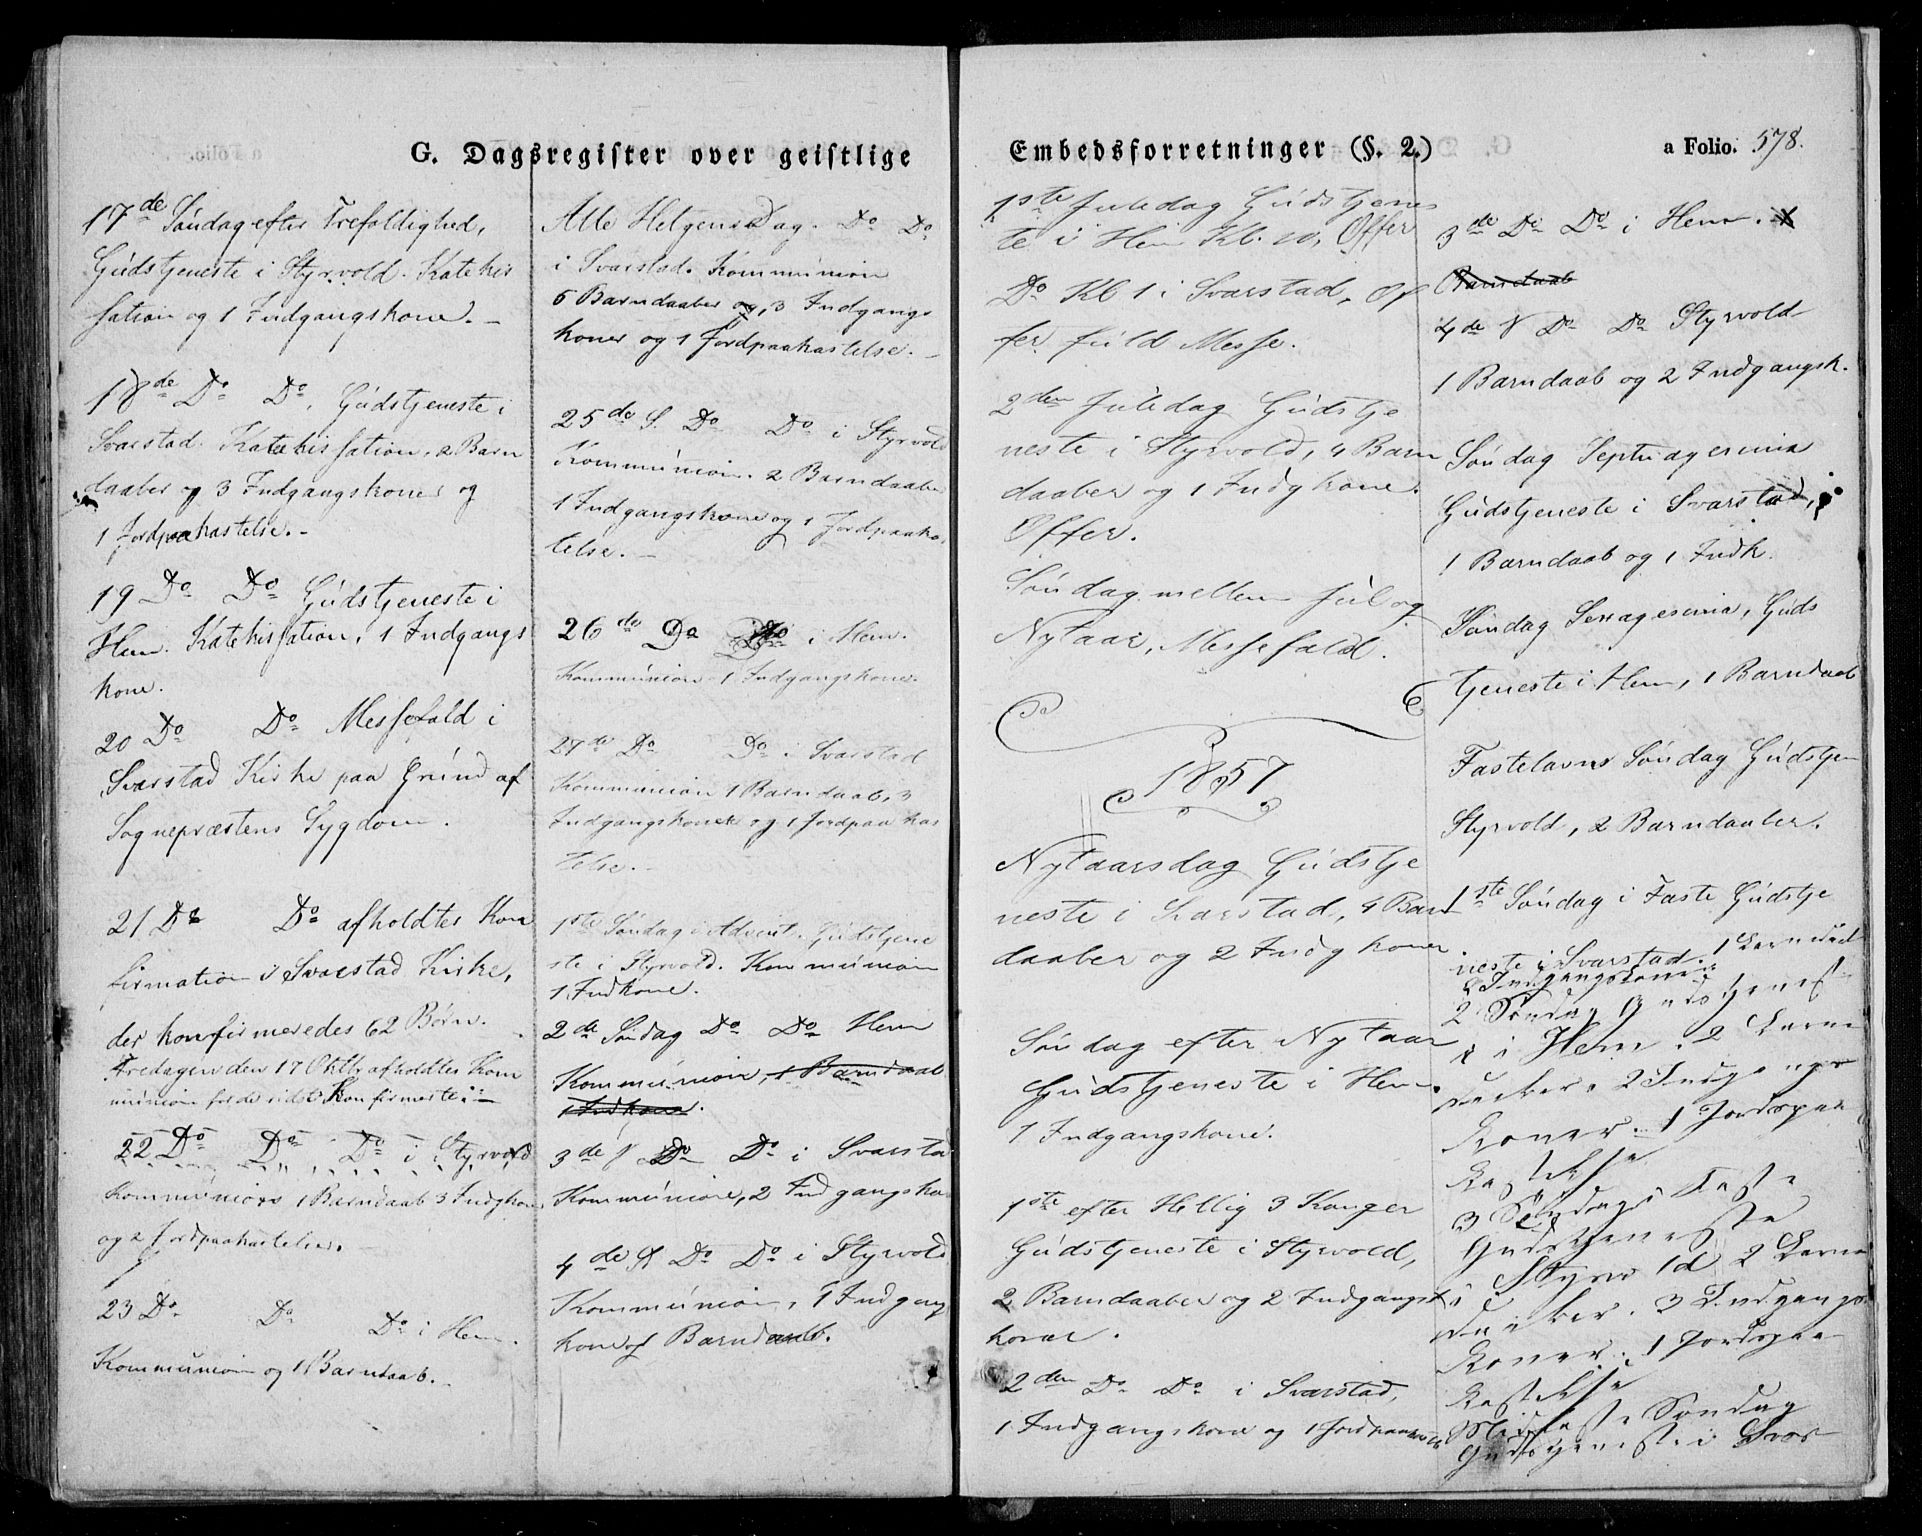 G. Dagsregister over geistlige
17de Søndag efter Trefoldighed,
Gudstjeneste i Styrvold. Katekis
sation og 1 Indgangskone. –
18de Do Do, Gudstjeneste i
Svarstad. Katekissation, 2 Barn
daaber og 3 Indgangskoner og
1 Jordpaakastelse. –
19 Do Do Gudstjeneste i
Hem. Katekissation, 1 Indgangs
kone.
20 Do Do Messefald i
Svarstad Kirke paa Grund af
Sognepræstens Sygdom.
21 Do Do afholdtes Kon
firmation i Svarstad Kirke,
der konfirmeredes 62 Børn.
Fredagen den 17 Oktbr afholdtes Kom
munion for de sidst Konfirmerte. –
22 Do Do Do i Styrvold
Kommunion 1 Barndaab 3 Indgkoner
og 2 Jordpaakastelser.
23 Do Do Do i Hem.
Kommunion og 1 Barndaab. –
Alle Helgens Dag. Do Do
i Svarstad. Kommunion
6 Barndaaber og, 3 Indgangs
koner og 1 Jordpaakastelse. –
25de S. Do Do i Styrvold
Kommunion. 2 Barndaaber
1 Indgangskone og 1 Jordpaakas
telse. –
26de Do Do i Hem.
Kommunion 1 Indgangskone.
27de Do Do i Svarstad
Kommunion 1 Barndaab, 3
Indgangskoner og 1 Jordpaa kas
telse. –
1ste Søndag i Advent. Gudstjene
ste i Styrvold. Kommunion
1 Indkone.
2de Søndag Do Do Hem
Kommunion, 1 Barndaab
1 Indkone.
3de S Do Do i Svarstad
Kommunion, 2 Indgangsko
4de S Do Do i Styrvold
Kommunion, 1 Indgang
kone og Barndaab.
Embedsforretninger (§. 2.)
a Folio. 578.
1ste Juledag Gudstjenes
te i Hem Kl. 10, Offer
Do Kl 1 i Svarstad, Of
fer, fuld Messe.
2den Juledag Gudstje
neste i Styrvold, 4 Barn
daaber og 1 Indgkone.
Offer.
Søndag mellem Jul og
Nytaar, Messefald.
1857
Nytaarsdag Gudstje
neste i Svarstad, 4 Barn
daaber og 2 Indgkoner.
Søndag efter Nytaar
Gudstjeneste i Hem.
1 Indgangskone.
1ste efter Hellig 3 Konger
Gudstjeneste i Styrvold,
2 Barndaaber og 2 Indgangs
koner.
2den Do Do i Svarstad,
1 Indgangskone og 1 Jordpaakast
3de Do Do i Hem.
Barndaab
4de S Do Do Styrvold
1 Barndaab og 2 Indgangsk.
Søndag Septuagesima
Gudstjeneste i Svarstad,
1 Barndaab og 1 Indk.
Søndag Sexagesima, Guds
tjeneste i Hem, 1 Barndaab
Fastelavns Søndag Gudstjen
Styrvold, 2 Barndaaber.
1ste Søndag i Faste Gudstje
neste i Svarstad. 1 Barndaab
Indgangskoner
2 Søndag Gudstjenest
i Hem. 2 Barne
daaber. 2 Indgangs
Koner. 1 Jordspaa
kastelse
3 Søndag i Faste
Gudstjeneste
i Styrvold 2 Barne
daaber. 3 Indgangs
Koner. 1 Jordspaa
kastelse
Midfaste Søndag
Gudstjeneste i Svar